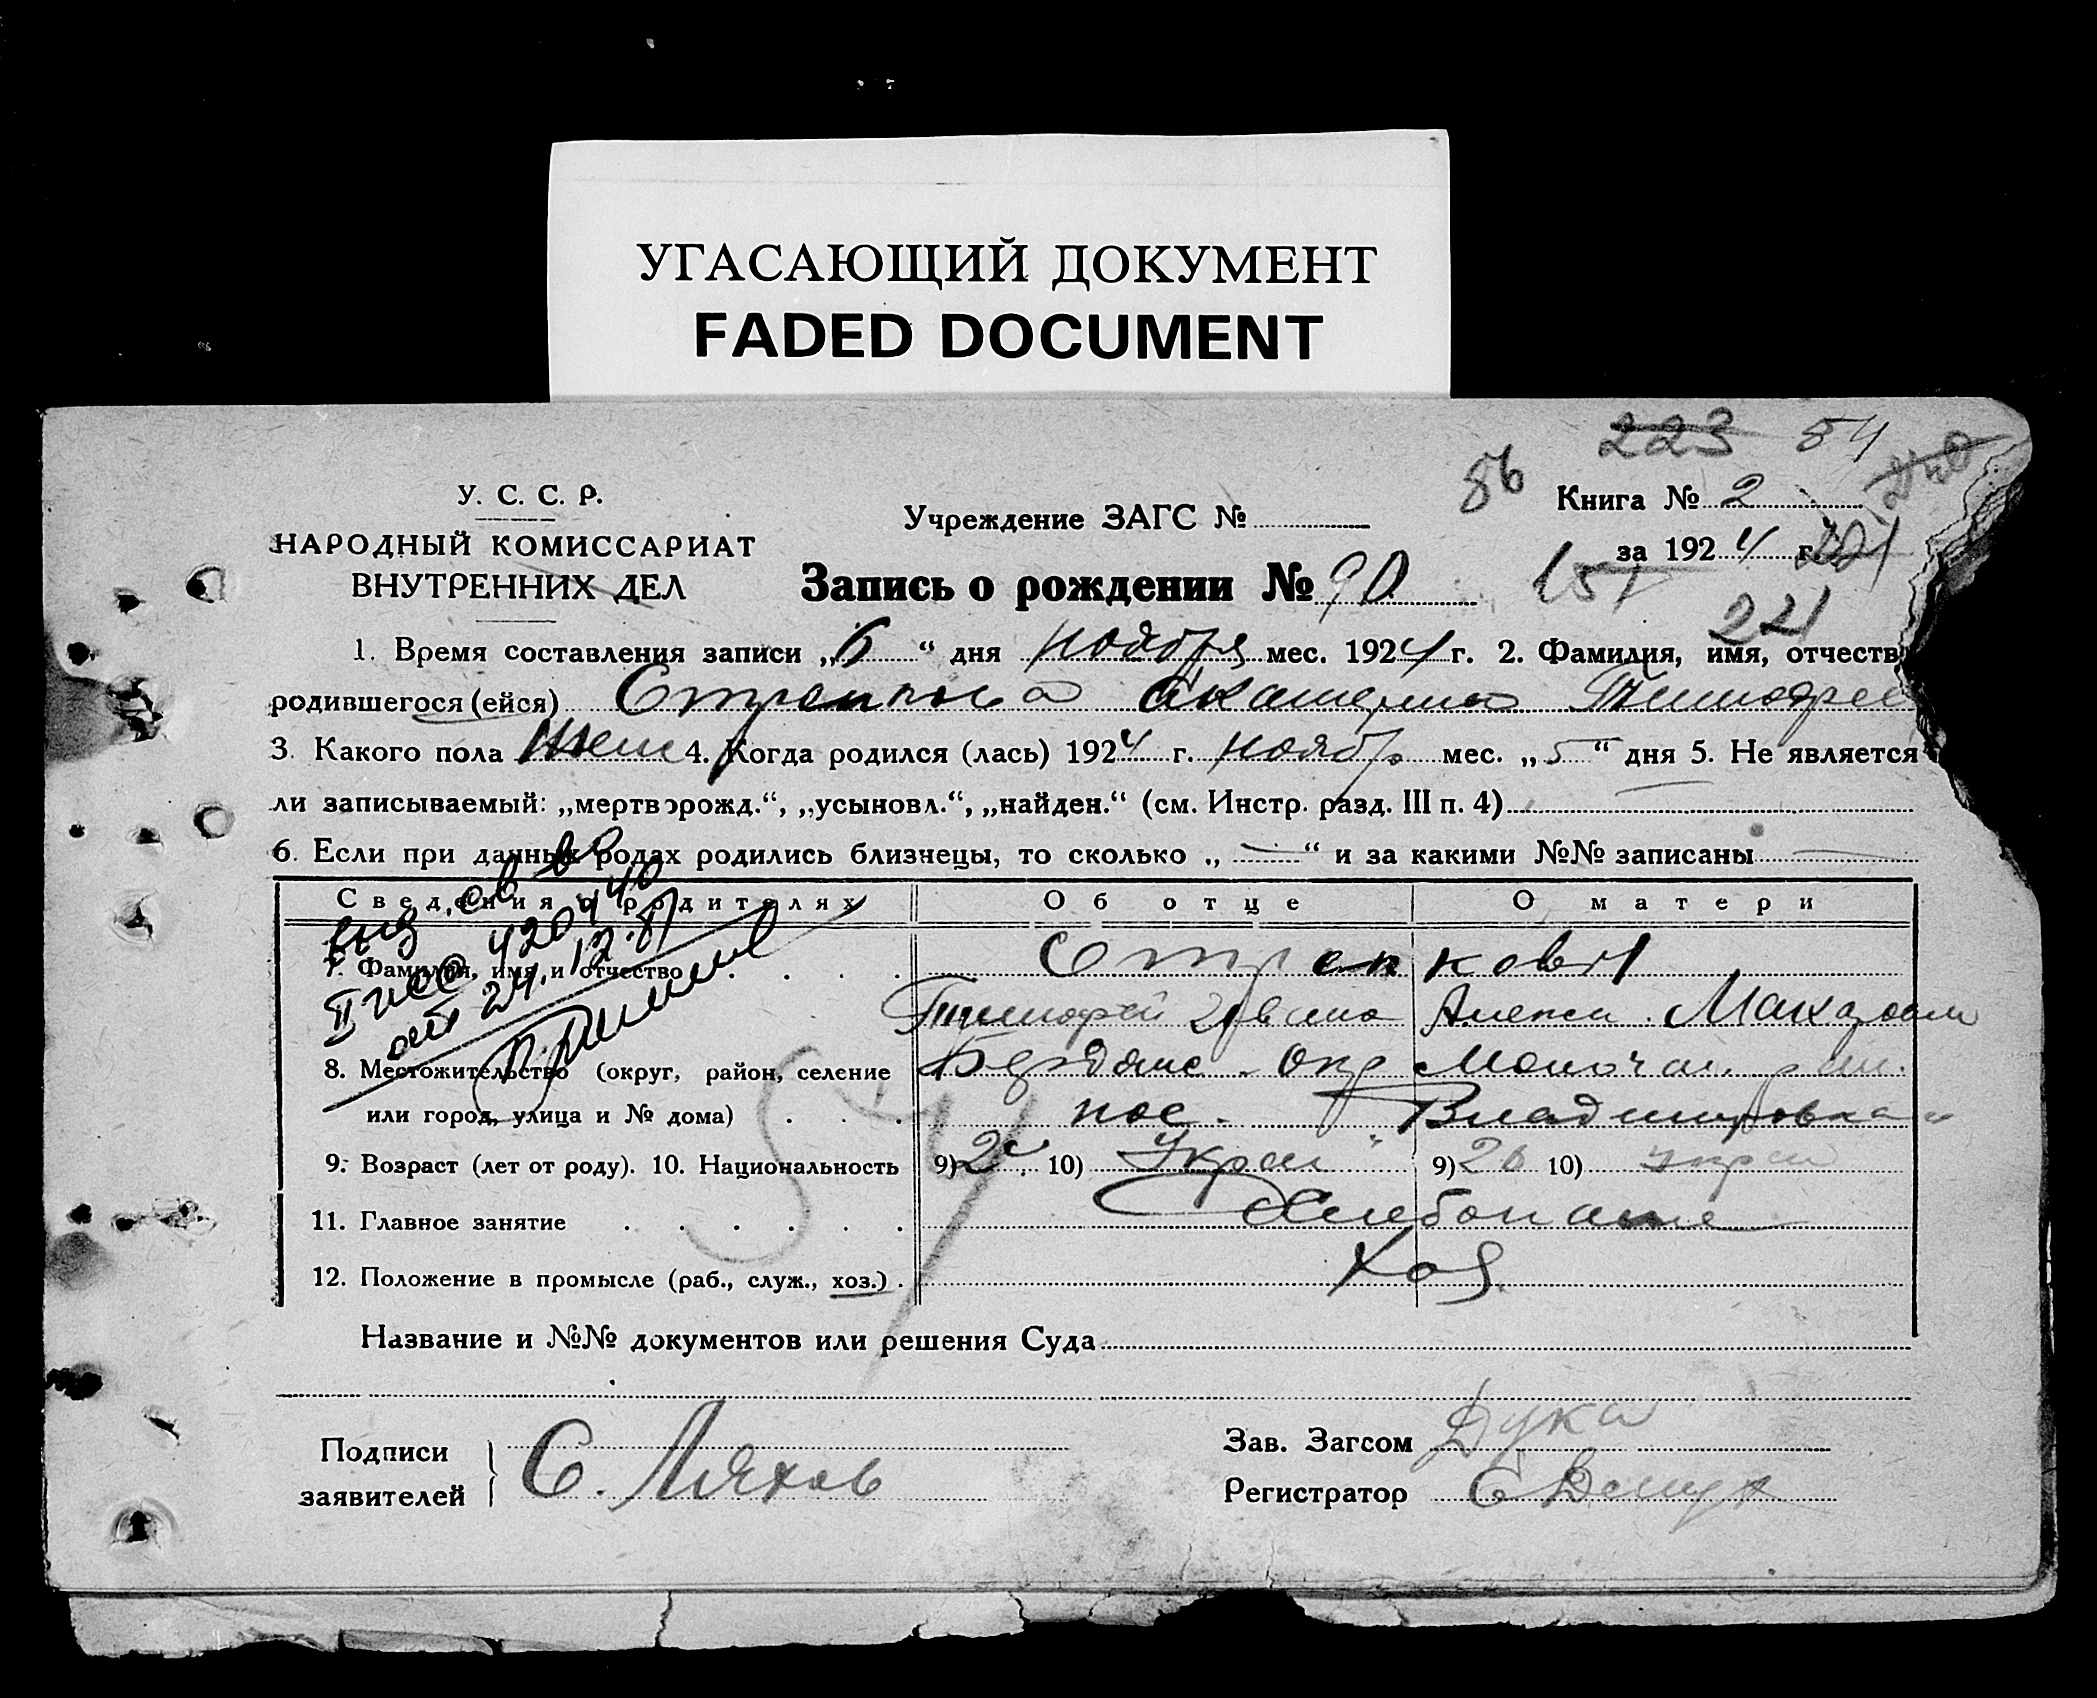 УГАСАЮЩИЙ ДОКУМЕНТ
FADED DOCUMENT
223 54
86
У. С. С. Р.
Учреждение ЗАГС №
Книга № 2
НАРОДНЫЙ КОМИССАРИАТ
за 1924 г.
ВНУТРЕННИХ ДЕЛ
Запись о рождении № 90
151
221
1. Время составления записи „6“ дня ноября мес. 1924 г. 2. Фамилия, имя, отчеств
родившегося (ейся) Екатерина Тимофее
3. Какого пола жен 4. Когда родился (лась) 1924 г. ноябр мес. „5“ дня 5. Не является
ли записываемый: „мертворожд.“, „усыновл.“, „найден.“ (см. Инстр. разд. III п. 4)
6. Если при данных родах родились близнецы, то сколько „ — “ и за какими №№ записаны —
Сведения о родителях Об отце О матери
7. Фамилия, имя и отчество
Тимофей
8. Местожительство (округ, район, селение Бердянс. Окр
или город, улица и № дома) пос. Владимировка
9. Возраст (лет от роду). 10. Национальность 9) 10) Укра 9) 26 10) укра
11. Главное занятие Хлебопаш
12. Положение в промысле (раб., служ., хоз.) Хоз
выд св во
420440
24.12.
54
Название и №№ документов или решения Суда
Подписи
заявителей
С. Ляхов
Зав. Загсом Дука
Регистратор